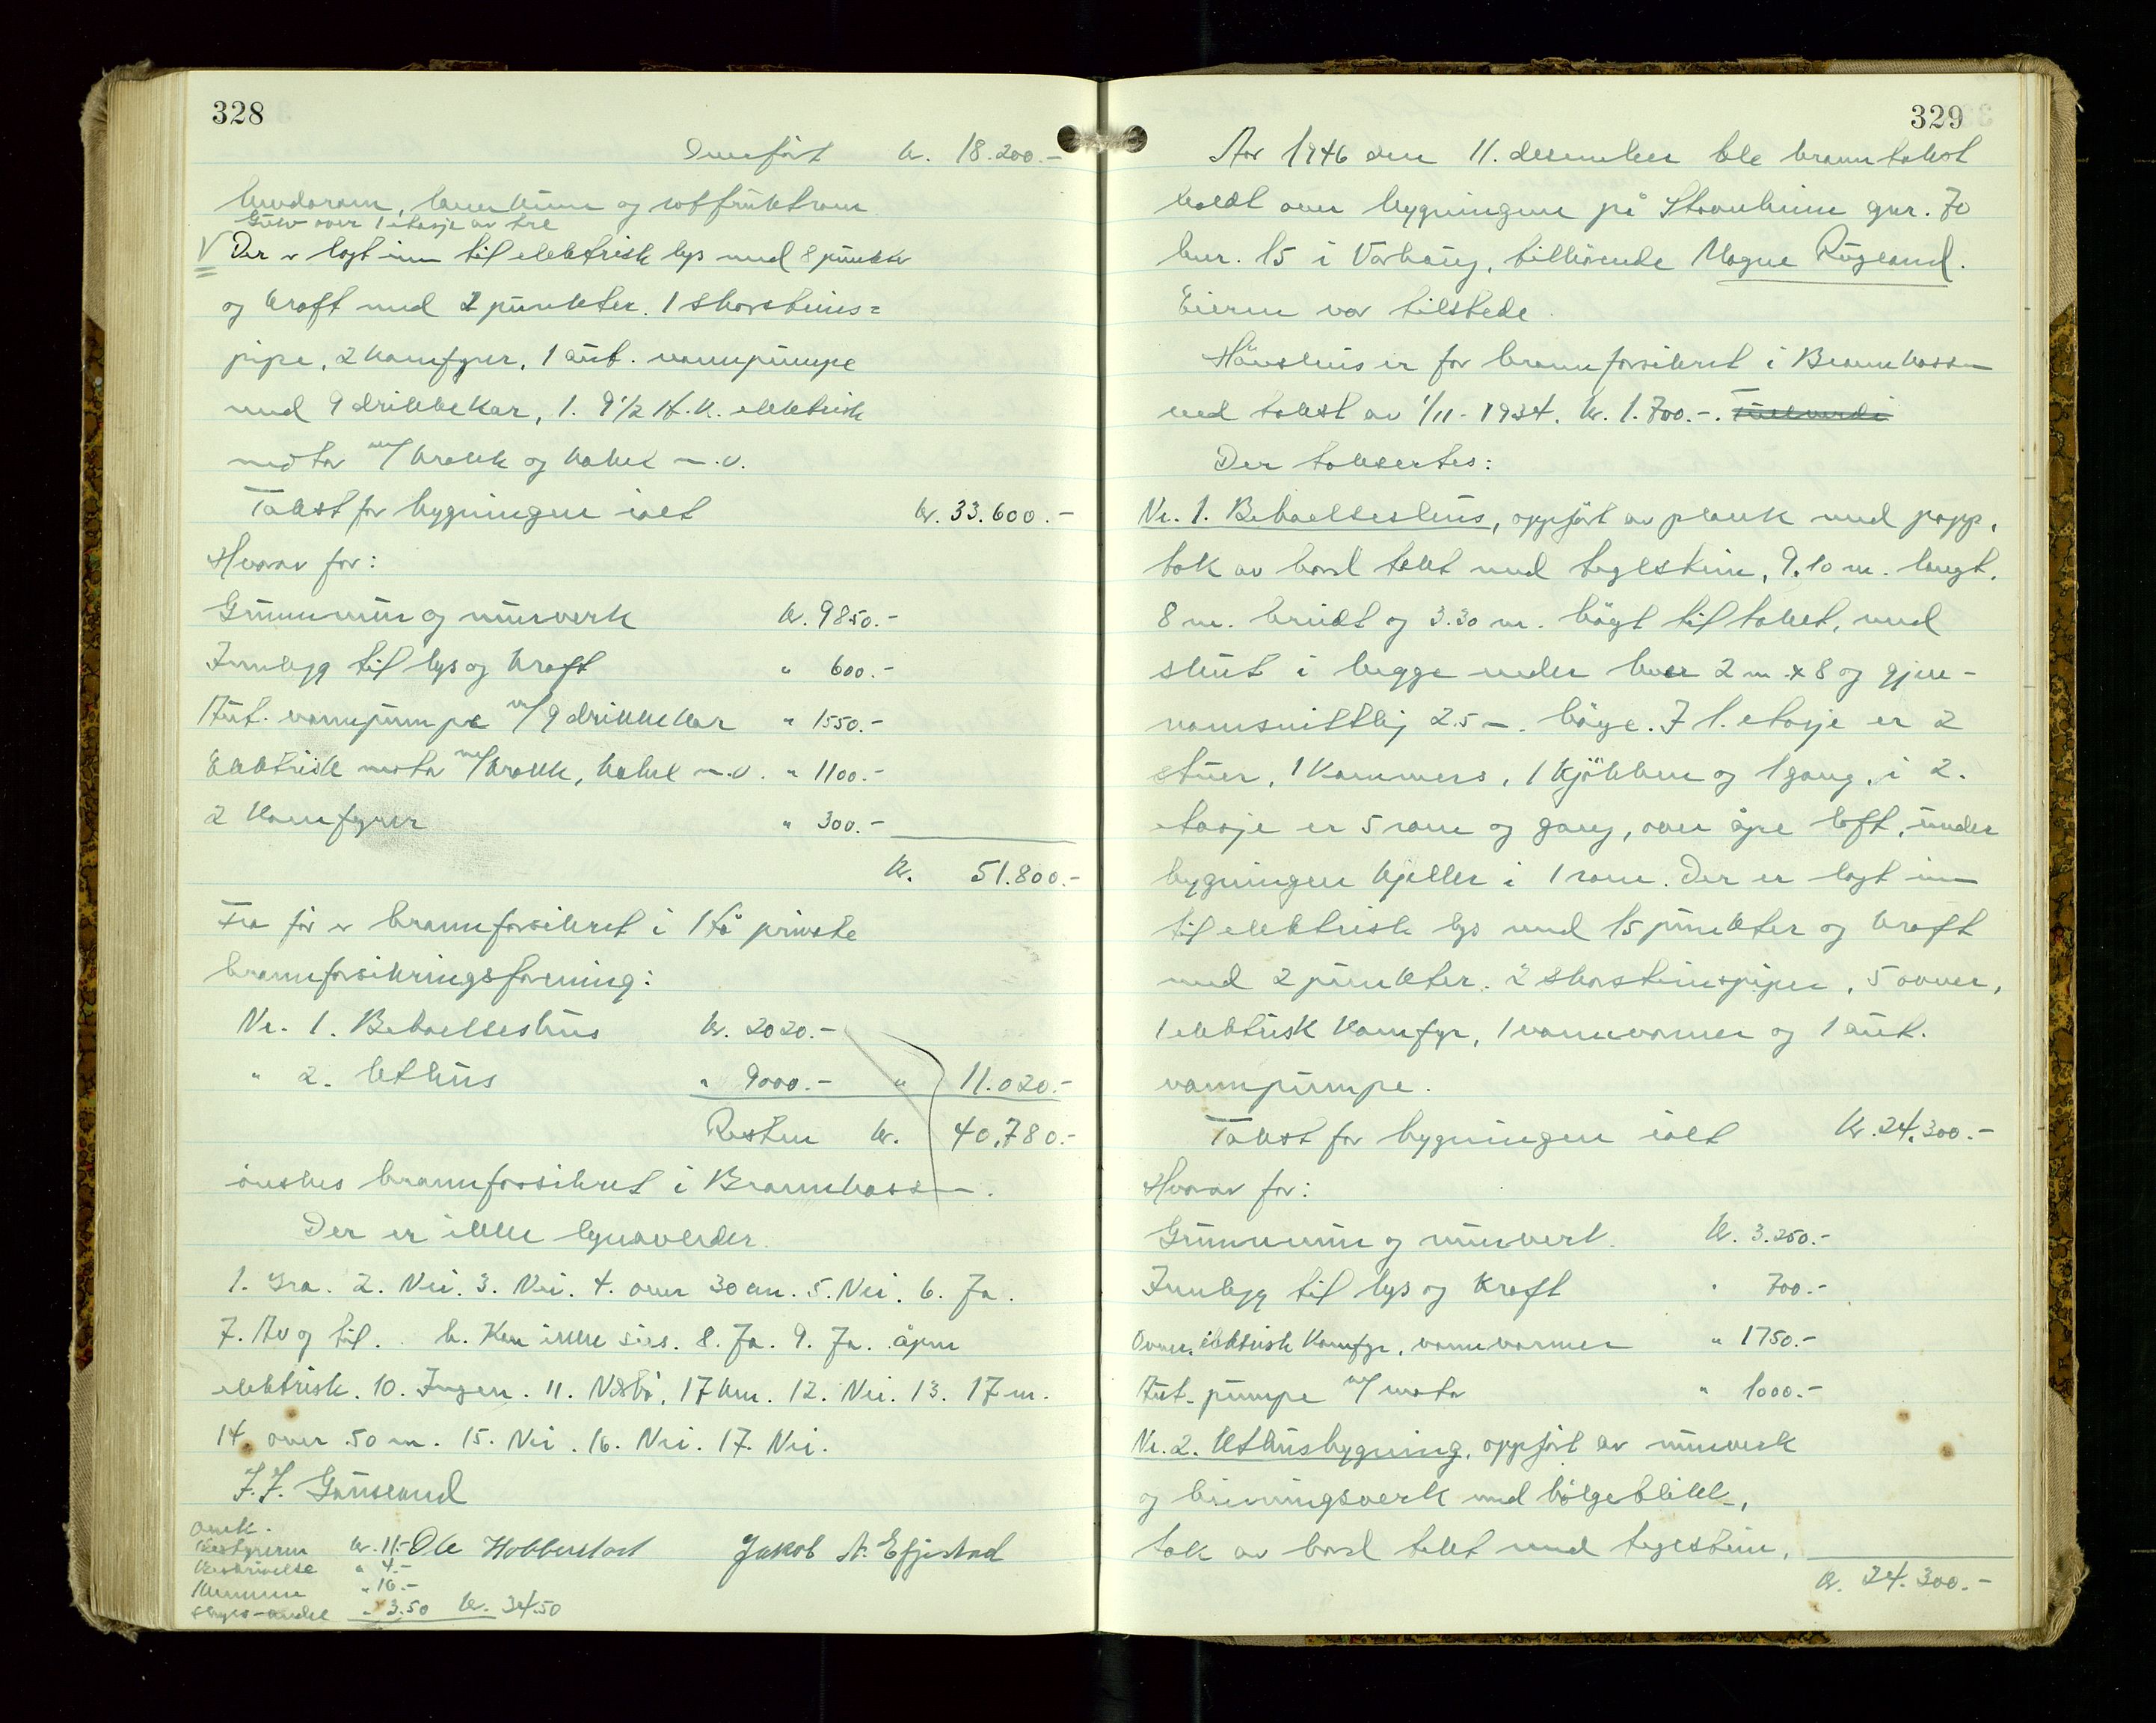 328
Overført kr. 18.200.-
og rotfruktrom
Gulv over 1 etasje av tre
V Der er lagt inn til elektrisk lys med 8 punkter
og kraft med 2 punkter. 1 skorsteins=
pipe, 2 kamfyrer, 1 aut. vannpumpe
med 9 drikkekar, 1. 9 1/2 H.K. elektrisk
motor m/ krakk og kabel m.v.
Takst for bygningen ialt kr. 33.600.-
Hvorav for:
Grunnmur og murverk kr. 9850.-
Innlegg til lys og kraft " 600.-
Aut. vannpumpe m/ 9 drikkekar " 1550.-
Elektrisk motor m/ krakk, kabel m.v. " 1100.-
2 kamfyrer " 300.-
kr. 51.800.-
Fra før er brannforsikret i Hå private
brannforsikringsforening:
Nr. 1. Beboelseshus kr. 2020.-
" 2. Uthus " 9000.- " 11.020.-
Resten kr. 40.780.-
ønskes brannforsikret i Brannkassen.
Der er ikke lynavleder.
1. Bra. 2. Nei. 3. Nei. 4. over 30 cm. 5. Nei. 6. Ja.
7. Av og til. b. Kan ikke sies. 8. Ja. 9. Ja. åpen
elektrisk. 10. Ingen. 11. Nærbø, 17 km. 12. Nei. 13. 17 m.
14. over 50 m. 15. Nei. 16. Nei. 17. Nei.
J. J. Gausland
Omk.
Bestyreren kr. 11.- Ole Hobberstad Jakob A. Efjestad
Beskrivelse " 4.-
Mennene " 16.-
" 3.50 kr. 34.50
329
Aar 1946 den 11. desember ble branntakst
holdt over bygningene på Stavnheim gnr. 70
bnr. 15 i Varhaug, tilhørende Magne Rugland.
Eieren var tilstede.
Våningshus er før brannforsikret i Brannkassen
ved takst av 1/11-1934. kr. 1.700.-. Fullverdi
Der takseertes:
Nr. 1. Beboelseshus, oppført av plank med papp,
tak av bord tekt med teglstein, 9,10 m. langt,
8 m. breidt og 3.30 m. høgt til taket, med
skut i begge ender hver 2 m. x 8 og gjen-
nomsnittlig 2.5 m. høge. I 1. etasje er 2
stuer, 1 kammers, 1 kjøkken og 1 gang, i 2.
etasje er 5 rom og gang, over åpe loft, under
bygningen kjeller i 1 rom. Der er lagt inn
til elektrisk lys med 15 punkter og kraft
med 2 punkter. 2 skorsteinspiper, 5 ovner,
1 elektrisk kamfyr, 1 vannvarmer og 1 aut.
vannpumpe.
Takst for bygningen ialt kr. 24.300.-
Hvorav for:
Grunnmur og murverk kr. 3.250.-
Innlegg til lys og kraft " 700.-
Ovner, elektrisk kamfyr, vannvarmer " 1750.-
Aut. pumpe m/ motor " 1000.-
Nr. 2. Uthusbygning, oppført av murverk
og binningsverk med bølgeblikk,
tak av bord tekt med teglstein.
kr. 24.300.-